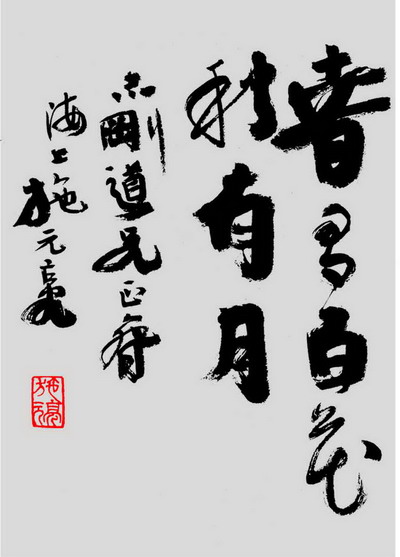 春有百花
秋有月
志剛道兄正
海上施元亮
施元亮